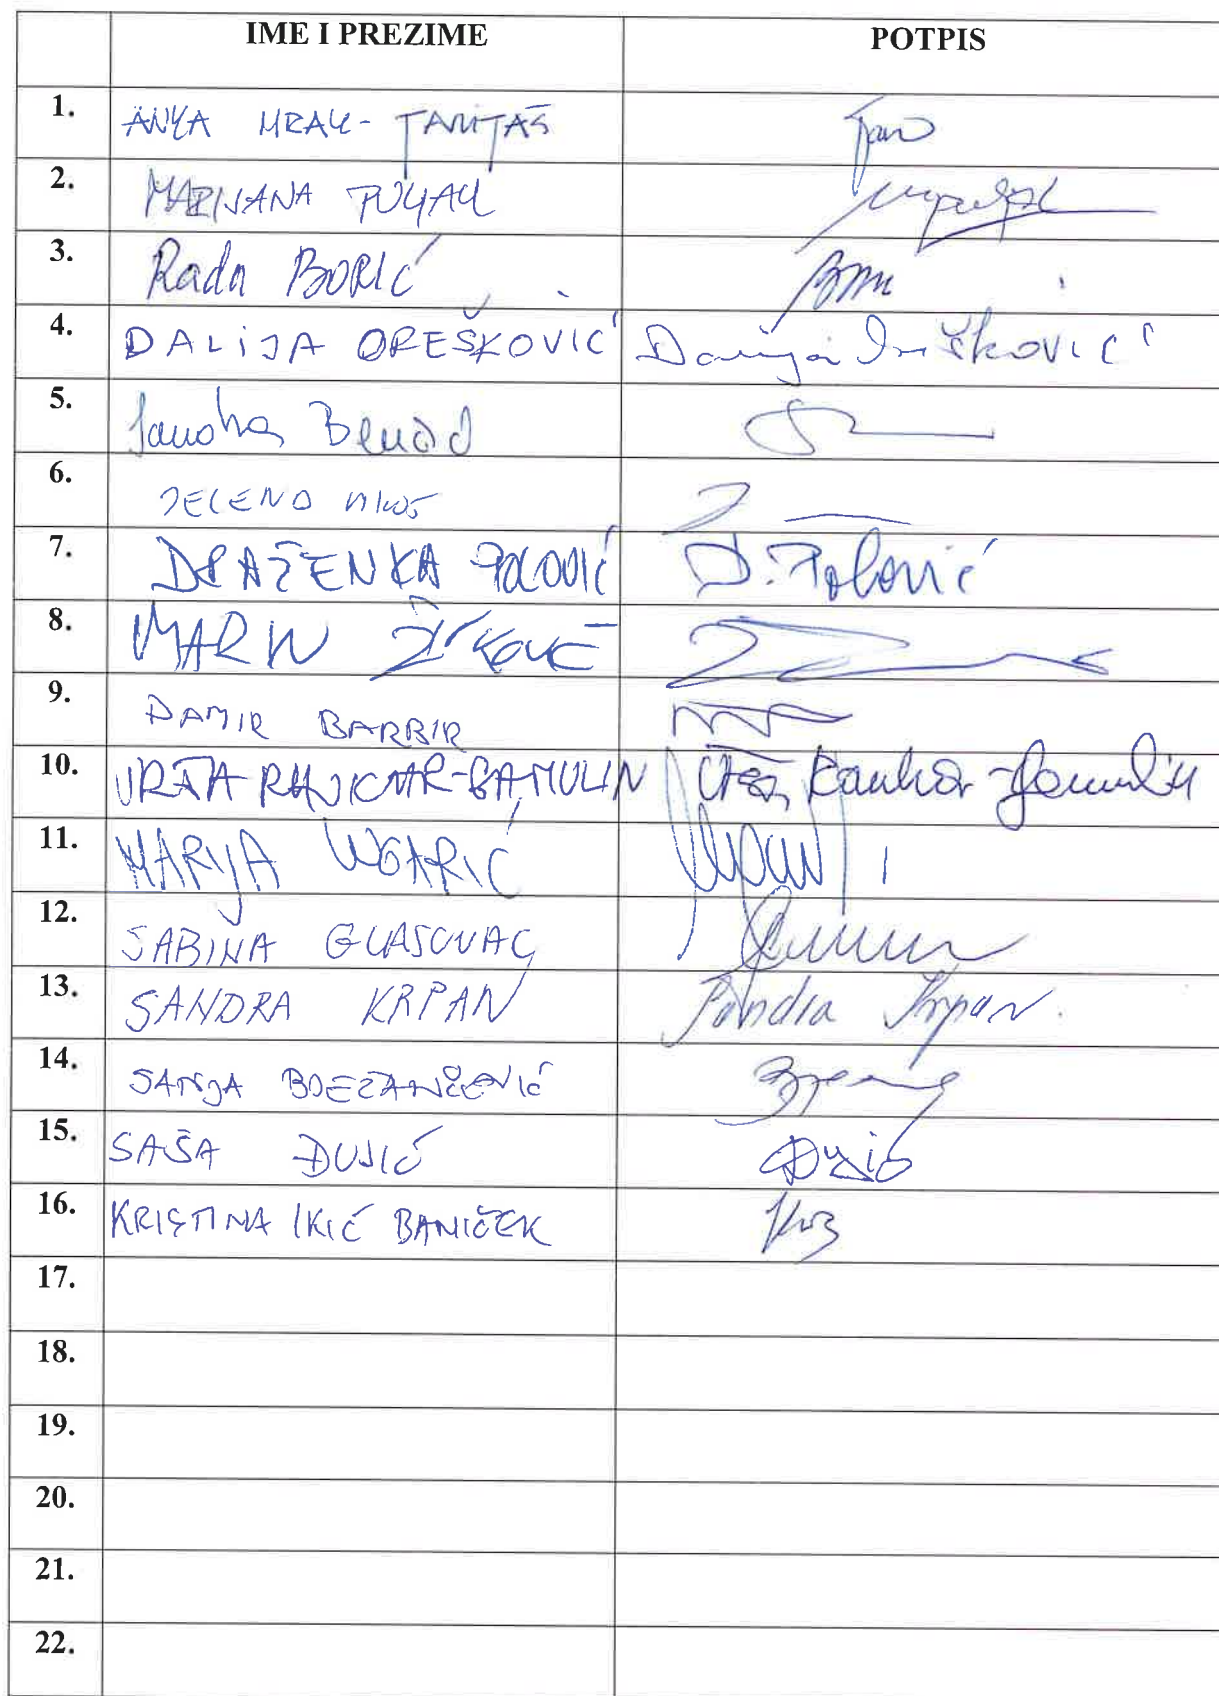 IME I PREZIME POTPIS
1. ANKA MRAK-TARITAŠ
2. MARIJANA PULJAK
3. Rada BORIĆ
4. DALIJA OREŠKOVIĆ Dalija Orešković
5. Sandra Benčić
6. JELENA MILOŠ
7. DRAŽENKA POLOVIĆ D. Polović
8. MARIN ŽIVKOVIĆ
9. DAMIR BARBIR
10. URŠA RAUKAR-GAMULIN Urša Raukar-Gamulin
11. MARIJA LUGARIĆ
12. SABINA GLASOVAC
13. SANDRA KRPAN Sandra Krpan
14. SANJA BJEŽANČEVIĆ
15. SAŠA ĐUJIĆ Đujić
16. KRISTINA IKIĆ BANIČEK
17.
18.
19.
20.
21.
22.